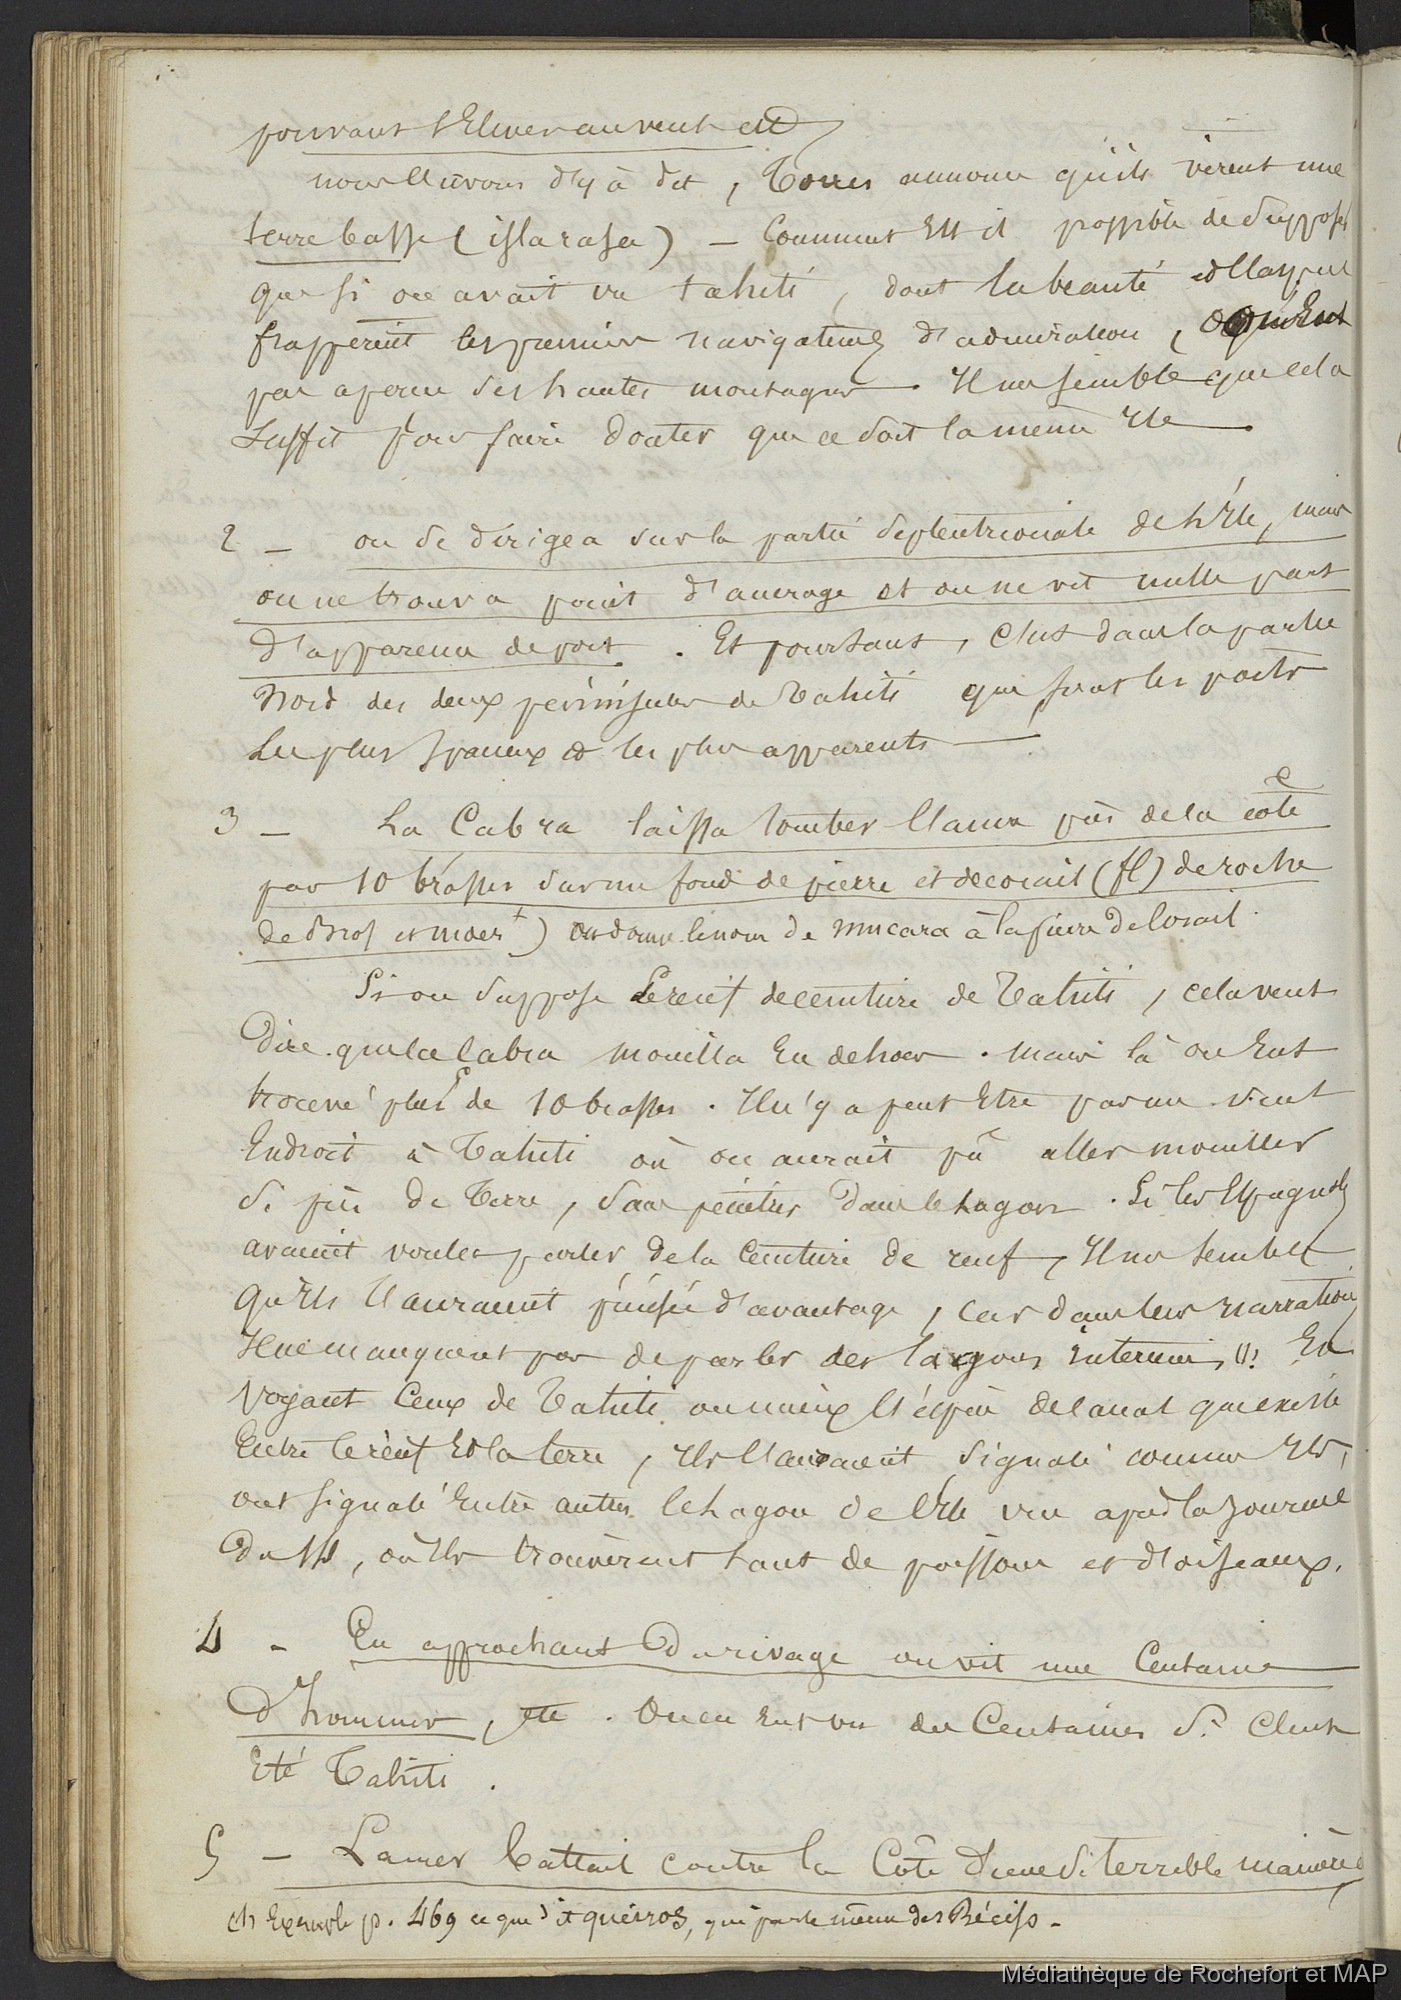 pouvant s'Elever au vent etc
nous l'avons déjà dit, Torres annonce qu'ils virent une
terre basse (isla rasa) — Comment Est il possible de supposer
que si on avait vu tahiti, dont la beauté et l'aspect
frappèrent les premiers navigateurs d'admiration, qu'on Eut
pas aperçu ses hautes montagnes. Il me semble que cela
suffit pour faire douter que ce soit la même Ile.
2 — on se dirigea sur la partie septentrionale de l'Ile, mais
on ne trouva point d'ancrage et on ne vit nulle part
d'apparence de port. Et pourtant, c'est dans la partie
Nord des deux péninsules de Tahiti que sont les ports
les plus spacieux et les plus apparents —
3 — La Cabra laissa tomber l'ancre près de la côte
par 10 brasses sur un fond de pierre et de corail (fl) de roche
de Bros et moer +) on donne le nom de mucara à la pierre de corail.
Si on suppose le recif de ceinture de Tahiti, cela veut
Dire que la Cabra mouilla En dehors. mais là on Eut
trouvé plus de 10 brasses. Il n'y a peut Etre pas un seul
Endroit à Tahiti où on aurait pû aller mouiller
si près de Terre, sans pénétrer Dans le Lagon. Si les Espagnols
avaient voulu parler de la Ceinture de recif, Il me semble
qu'Ils l'auraient précisé d'avantage, car dans leur narration
Il ne manquent pas de parler des lagons interieurs (1). En
voyant Ceux de Tahiti ou mieux l'espèce de canal qui existe
Entre le récif Et la terre, Ils l'auraient signalé comme Ils
ont signalé Entre autres le Lagon de l'Ile vu après la journée
Du, où Ils trouvèrent tant de poissons et d'oiseaux.
4 — En approchant Du rivage on vit une Centaine
d'hommes, etc. On en Eut vu des Centaines si c'Eut
Eté Tahiti.
5 — La mer battait contre la Côte d'une si terrible manière
(1) Exemple p. 469 ce que dit queiros, qui parle même des Récifs.
Médiathèque de Rochefort et MAP